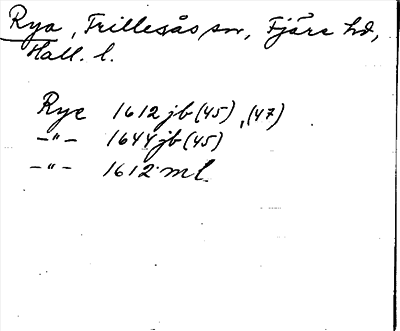 Rya, Frillesås sn, Fjäre hd,
Hall. l.
Rye 1612 jb (45), (47)
—"— 1644 jb (45)
—"— 1612 ml.